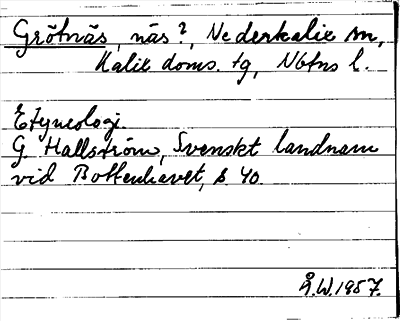 Grötnäs, näs?, Nederkalix sn,
Kalix doms. tg, Nbtns l.
Etymologi
G. Hallström, Svenskt landnam
vid Bottenhavet, s 40.
Å.W. 1957.